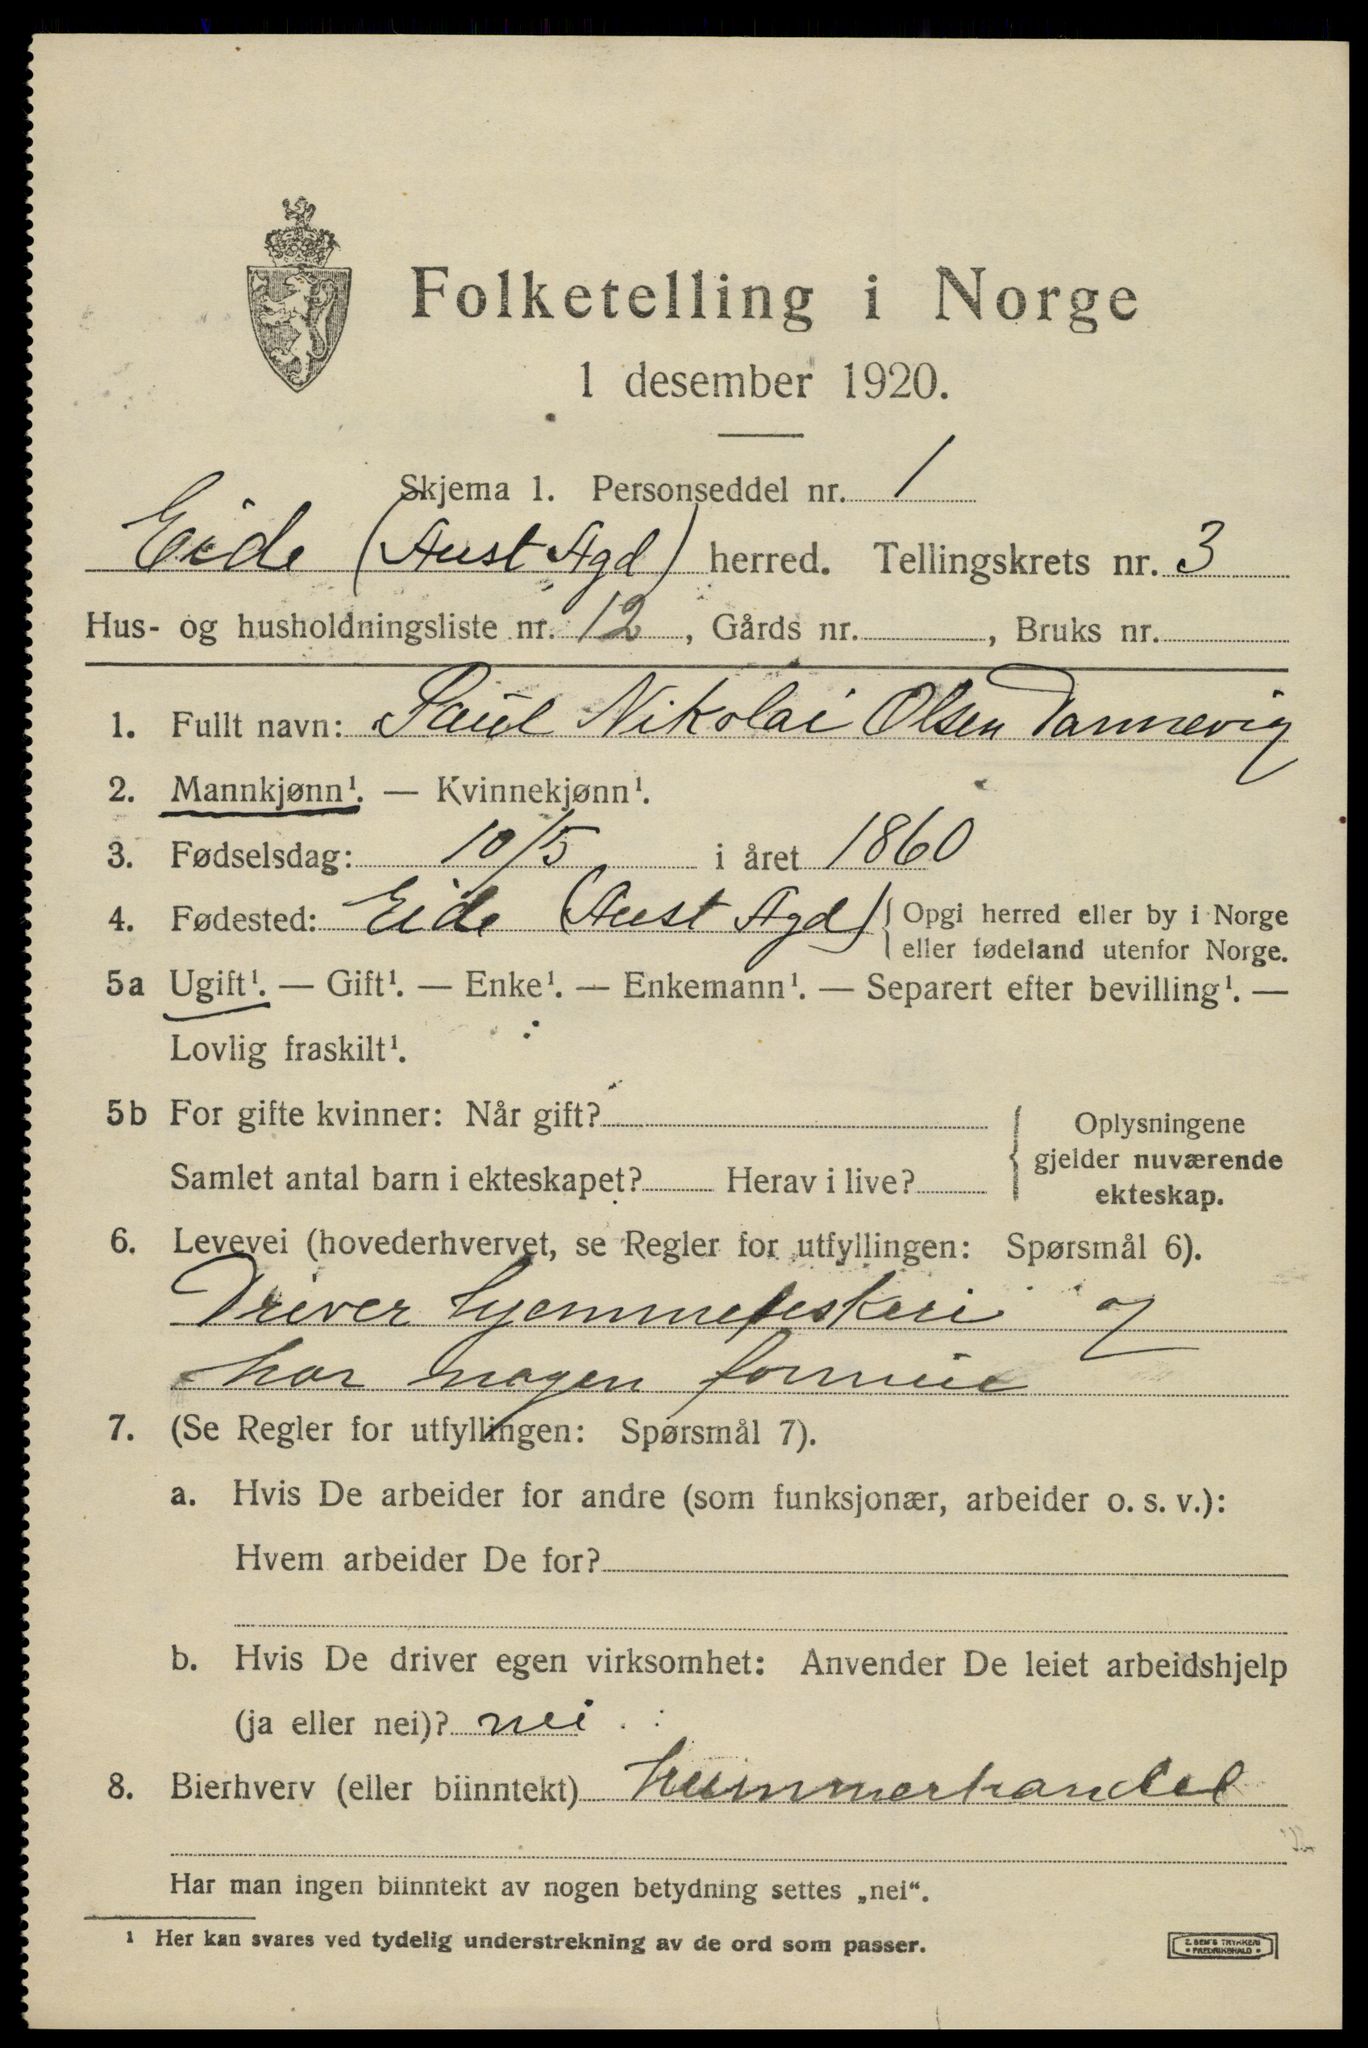 Folketelling i Norge
1 desember 1920.
Skjema 1. Personseddel nr. 1
Eide (Aust Agd) herred. Tellingskrets nr. 3
Hus- og husholdningsliste nr. 12, Gårds nr. , Bruks nr.
1. Fullt navn: Paul Nikolai Olsen Dannevig
2. Mannkjønn¹. — Kvinnekjønn¹.
3. Fødselsdag: 10/5 i året 1860
4. Fødested: Eide (Aust Agd) { Opgi herred eller by i Norge
eller fødeland utenfor Norge.
5a Ugift¹. — Gift¹. — Enke¹. — Enkemann¹. — Separert efter bevilling¹. —
Lovlig fraskilt¹.
5b For gifte kvinner: Når gift?
Samlet antal barn i ekteskapet? Herav i live?
{ Oplysningene
gjelder nuværende
ekteskap.
6. Levevei (hovederhvervet, se Regler for utfyllingen: Spørsmål 6).
Driver hjemmefeskeri og
har nogen formue
7. (Se Regler for utfyllingen: Spørsmål 7).
a. Hvis De arbeider for andre (som funksjonær, arbeider o. s. v.):
Hvem arbeider De for?
b. Hvis De driver egen virksomhet: Anvender De leiet arbeidshjelp
(ja eller nei)? nei
8. Bierhverv (eller biinntekt) hummerhandel
Har man ingen biinntekt av nogen betydning settes „nei“.
¹ Her kan svares ved tydelig understrekning av de ord som passer.
E. SEM'S TRYKKERI
FREDRIKSHALD